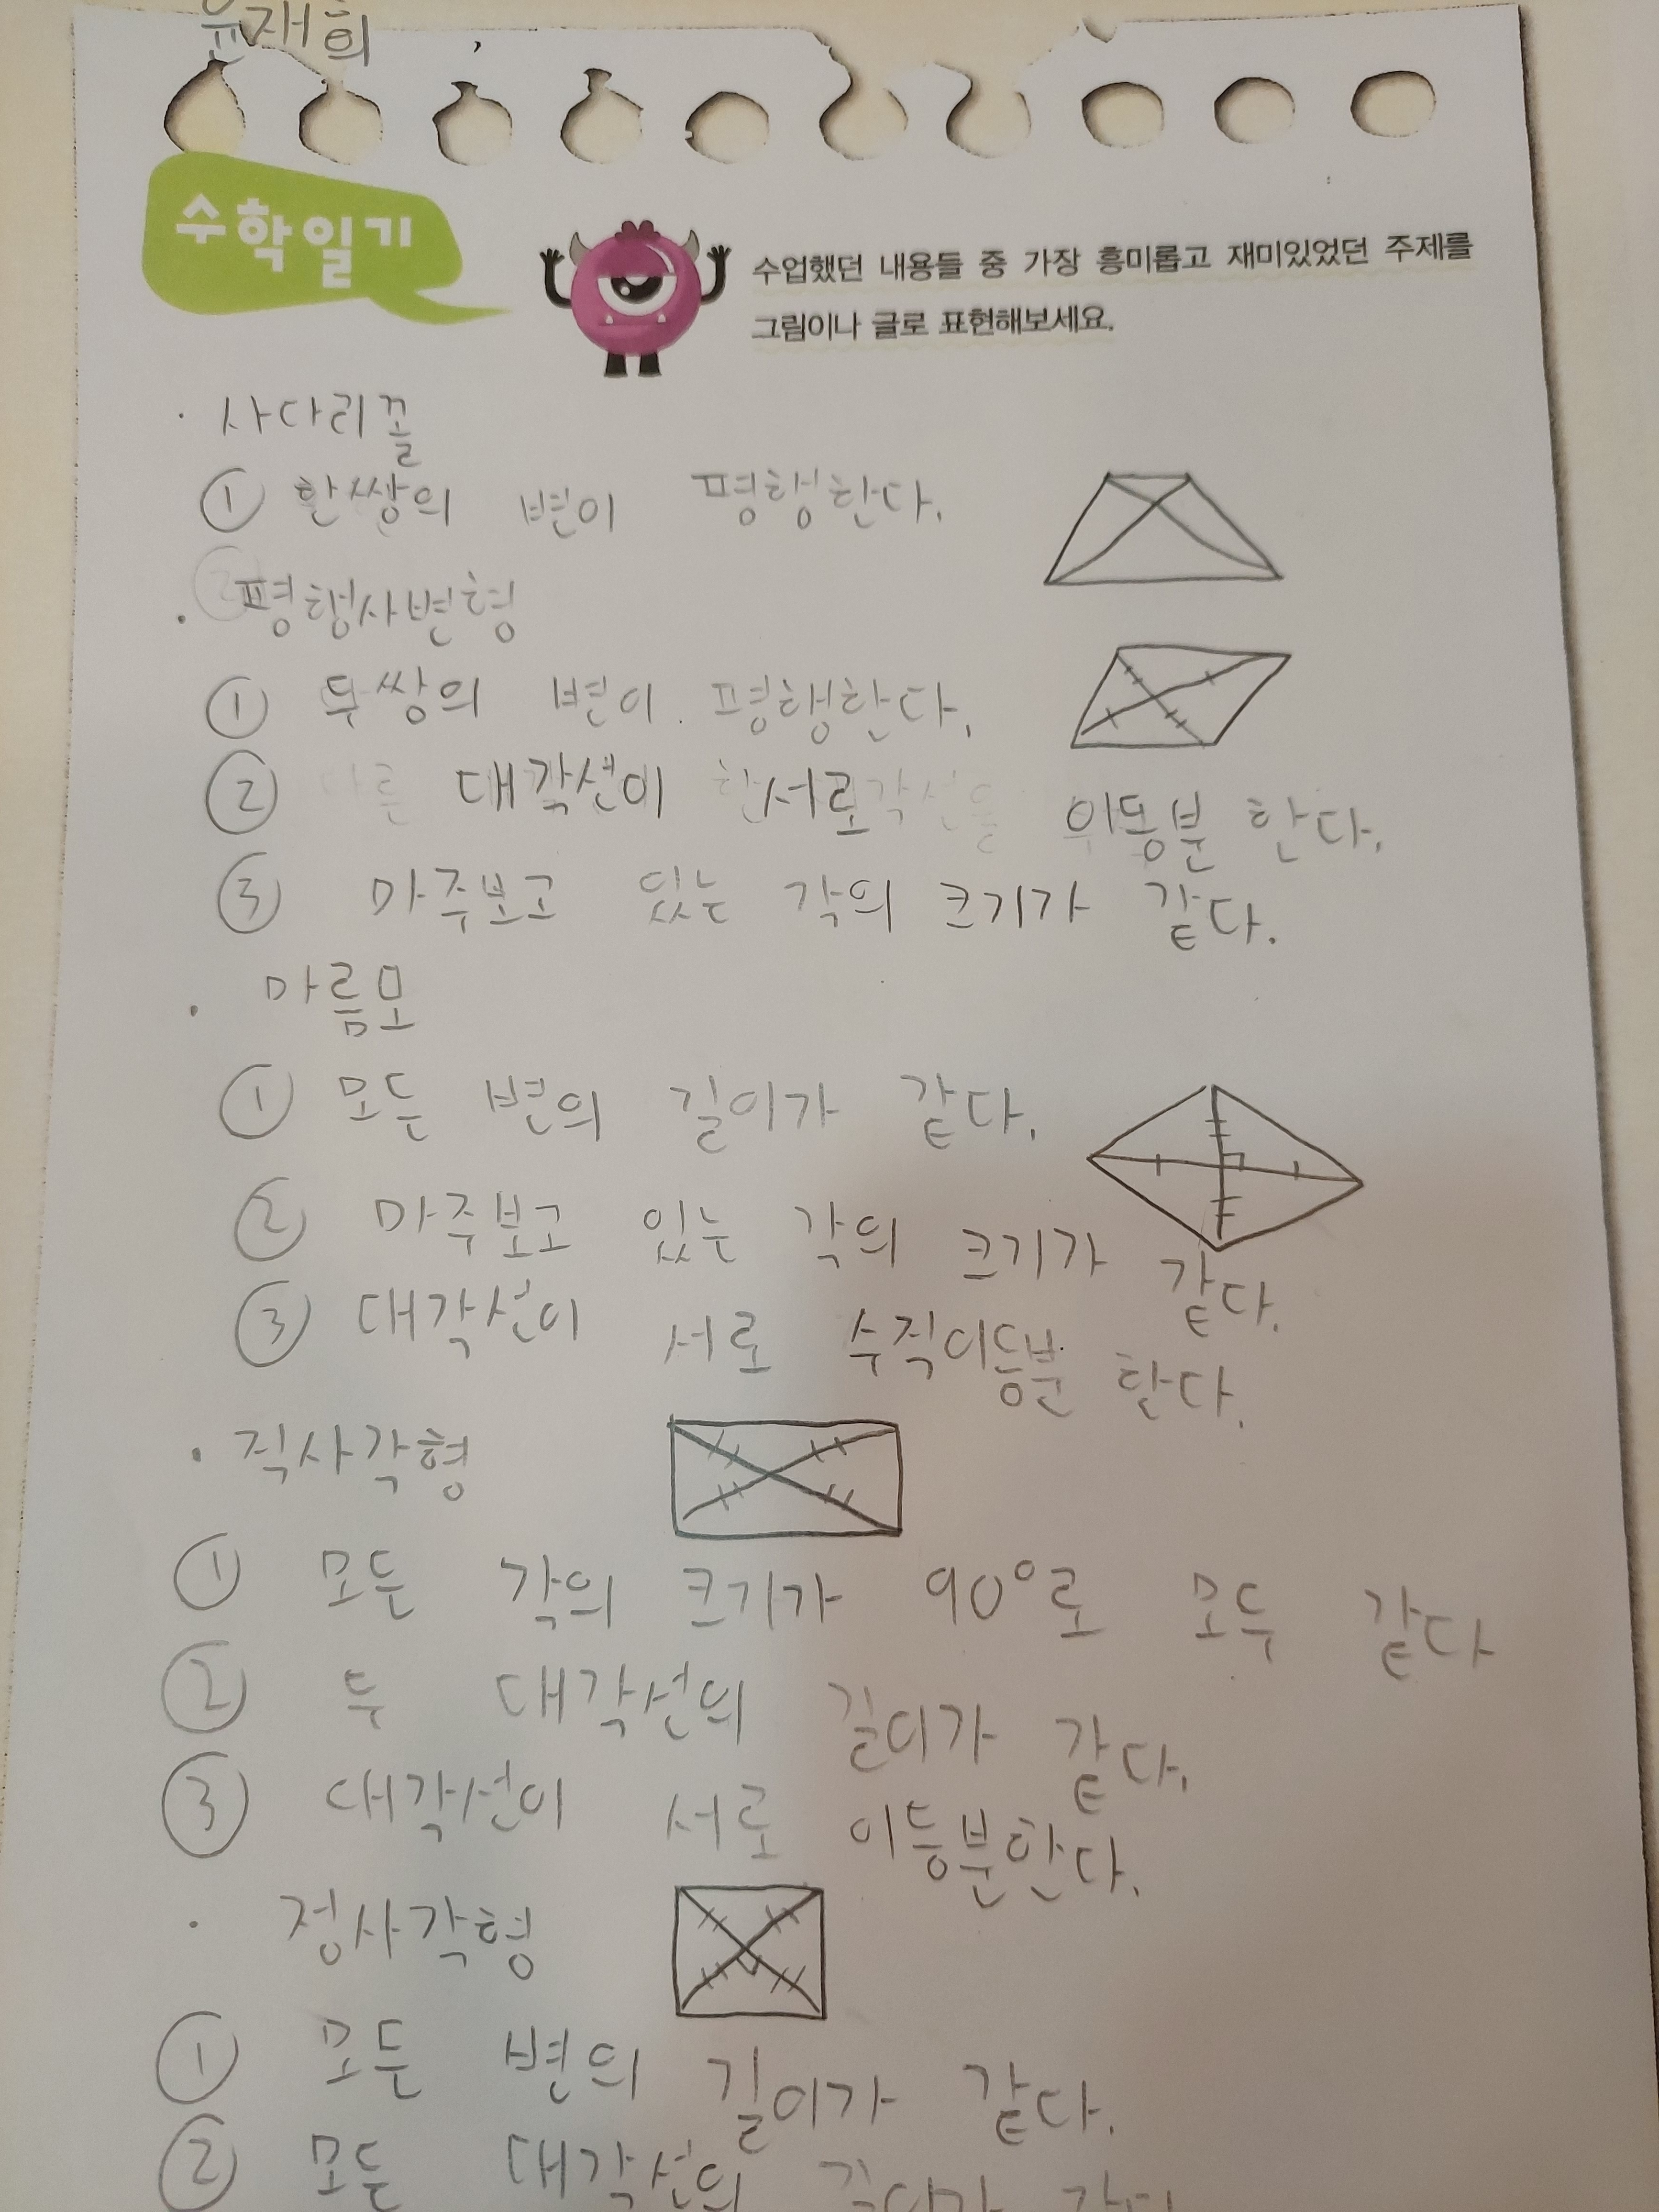 윤재희
수학일기
수업했던 내용들 중 가장 흥미롭고 재미있었던 주제를
그림이나 글로 표현해보세요.
· 사다리꼴
① 한쌍의 변이 평행한다.
· 평행사변형
① 두쌍의 변이 평행한다.
② 대각선이 서로 이등분 한다.
③ 마주보고 있는 각의 크기가 같다.
· 마름모
① 모든 변의 길이가 같다.
② 마주보고 있는 각의 크기가 같다.
③ 대각선이 서로 수직이등분 한다.
· 직사각형
① 모든 각의 크기가 90°로 모두 같다
② 두 대각선의 길이가 같다.
③ 대각선이 서로 이등분한다.
· 정사각형
① 모든 변의 길이가 같다.
② 모든 대각선의 길이가 같다